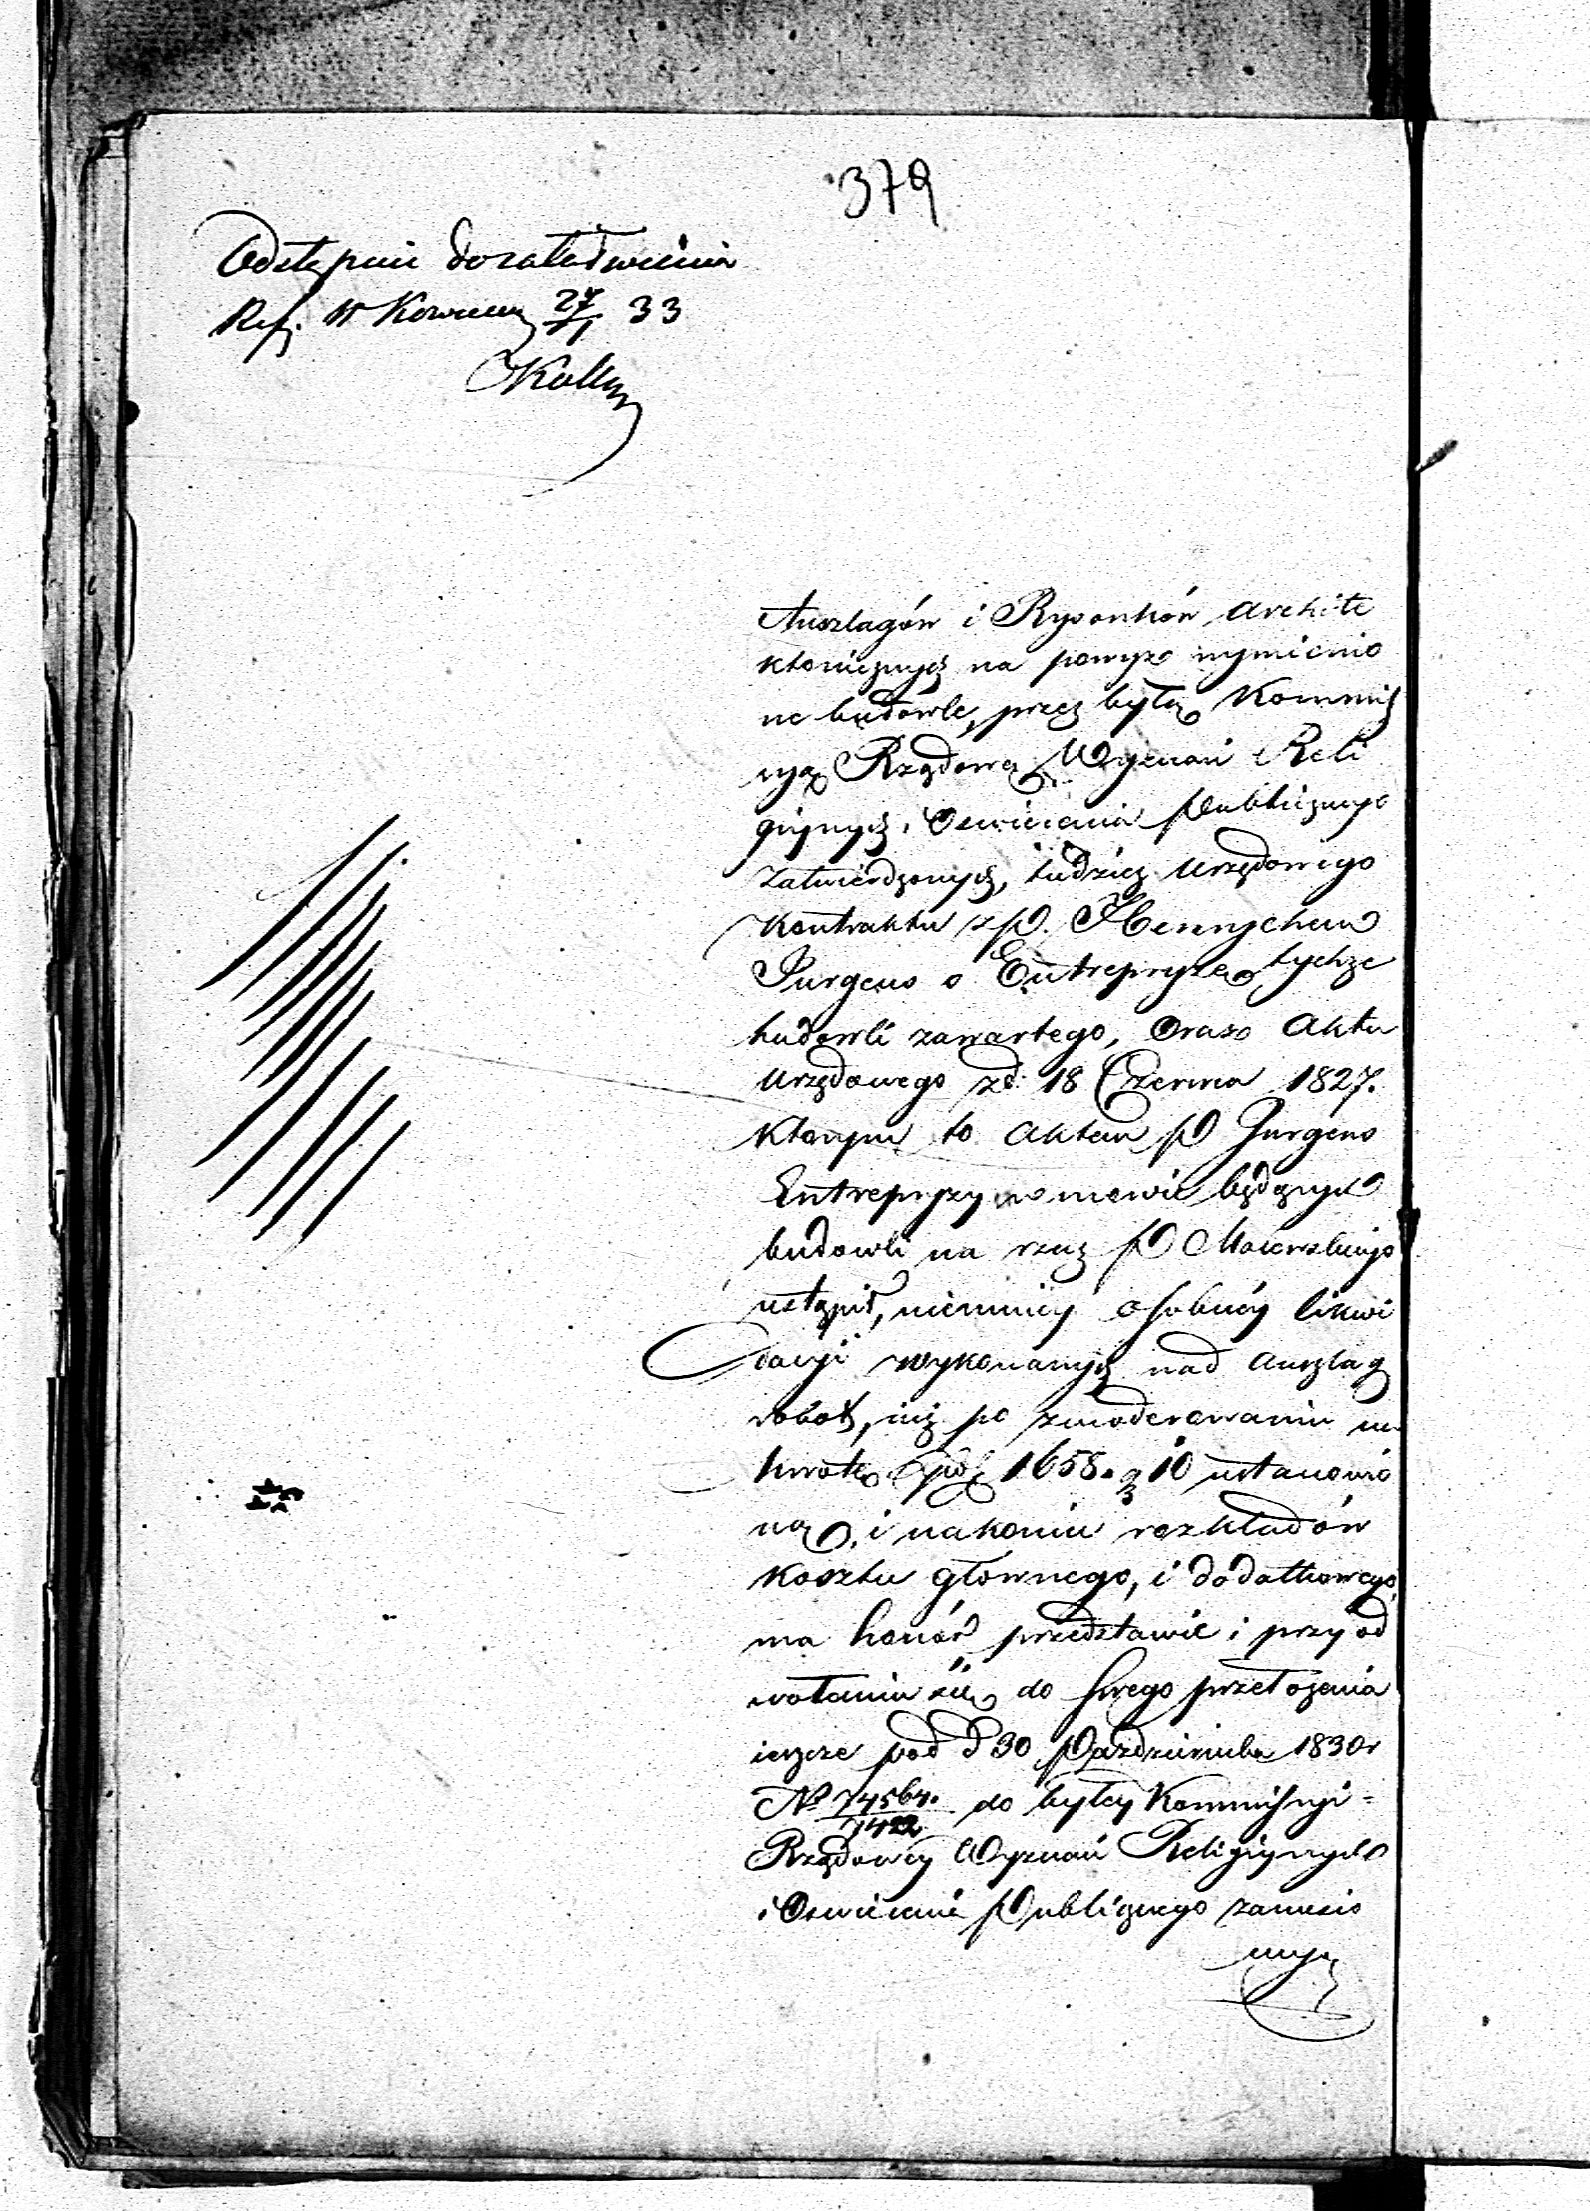 379
Odstępuie do załatwienia
Ref. W 27/1 33
Auszlagów i Rysonków archite
ktonicznych na powyże wymienio
ne budowle, przez byłą Kommis
syą Rządową Wyznań Reli
giynych i Oswiecenia Publicznego
Zatwierdzonych, tudzież urzędowego
Kontraktu z P. Hennychem
Jurgens o Entrepryze tychże
budowli zawartego, Oraz Aktu
urzędowego z d: 18 Czerwca 1827.
Którym to Aktem P Jurgens
Entrepryzy w mowie będących
budowli na rzecz P
ustąpił, niemniey osobney likwi
dacyi wykonanych nad auszlag
robot, iuż po zmoderowaniu na
kwotę Złp 1658. g 10 ustanowio
ną, i nakoniec rozkładów
kosztu głównego, i dodatkowego,
ma honór przedstawić i przy od
wołaniu się do swego przełożenia
ieszcze pod d 30 Października 1830 r
No 74564./7422 do byłey Kommissyi =
Rządowey Wyznań Religiynych
i Oswiecenia Publicznego zaniesio
nego